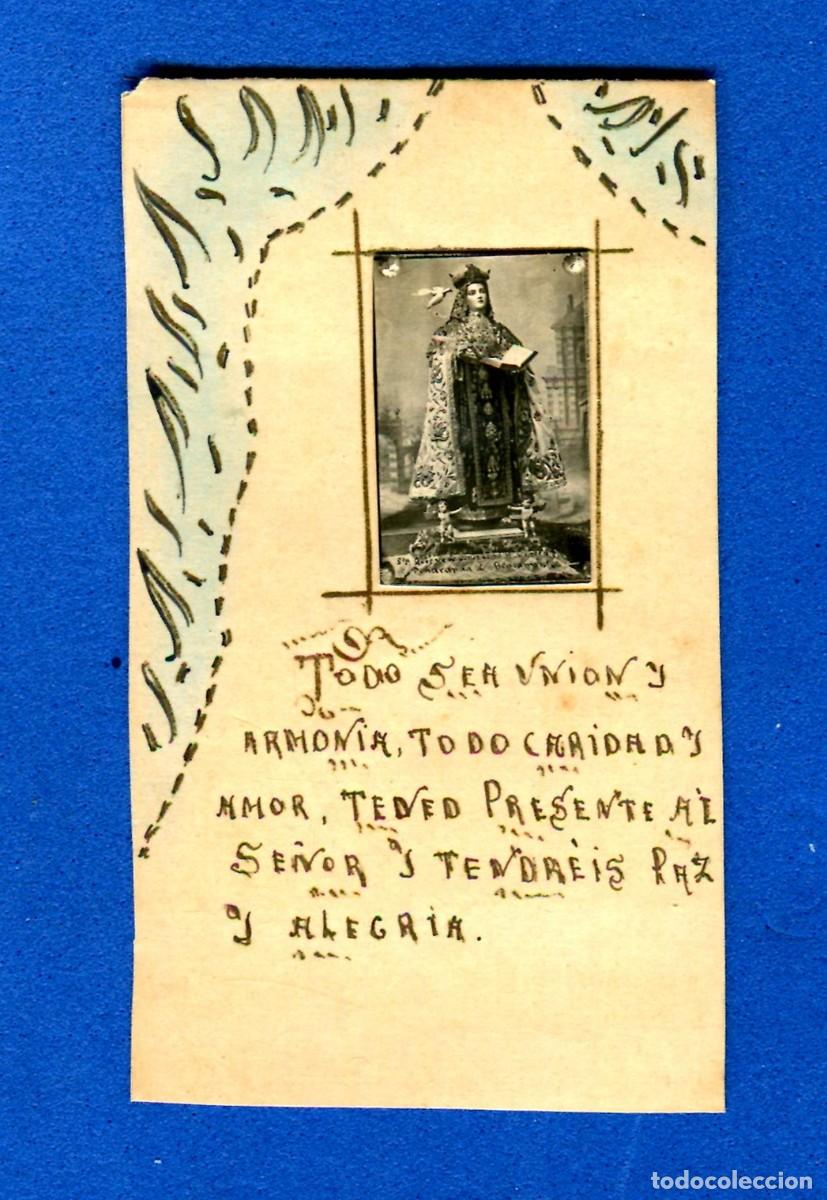 TODO SEA UNION Y
ARMONÍA, TODO CARIDAD Y
AMOR, TENED PRESENTE AL
SEÑOR Y TENDRÉIS PAZ
Y ALEGRIA.
todocoleccion